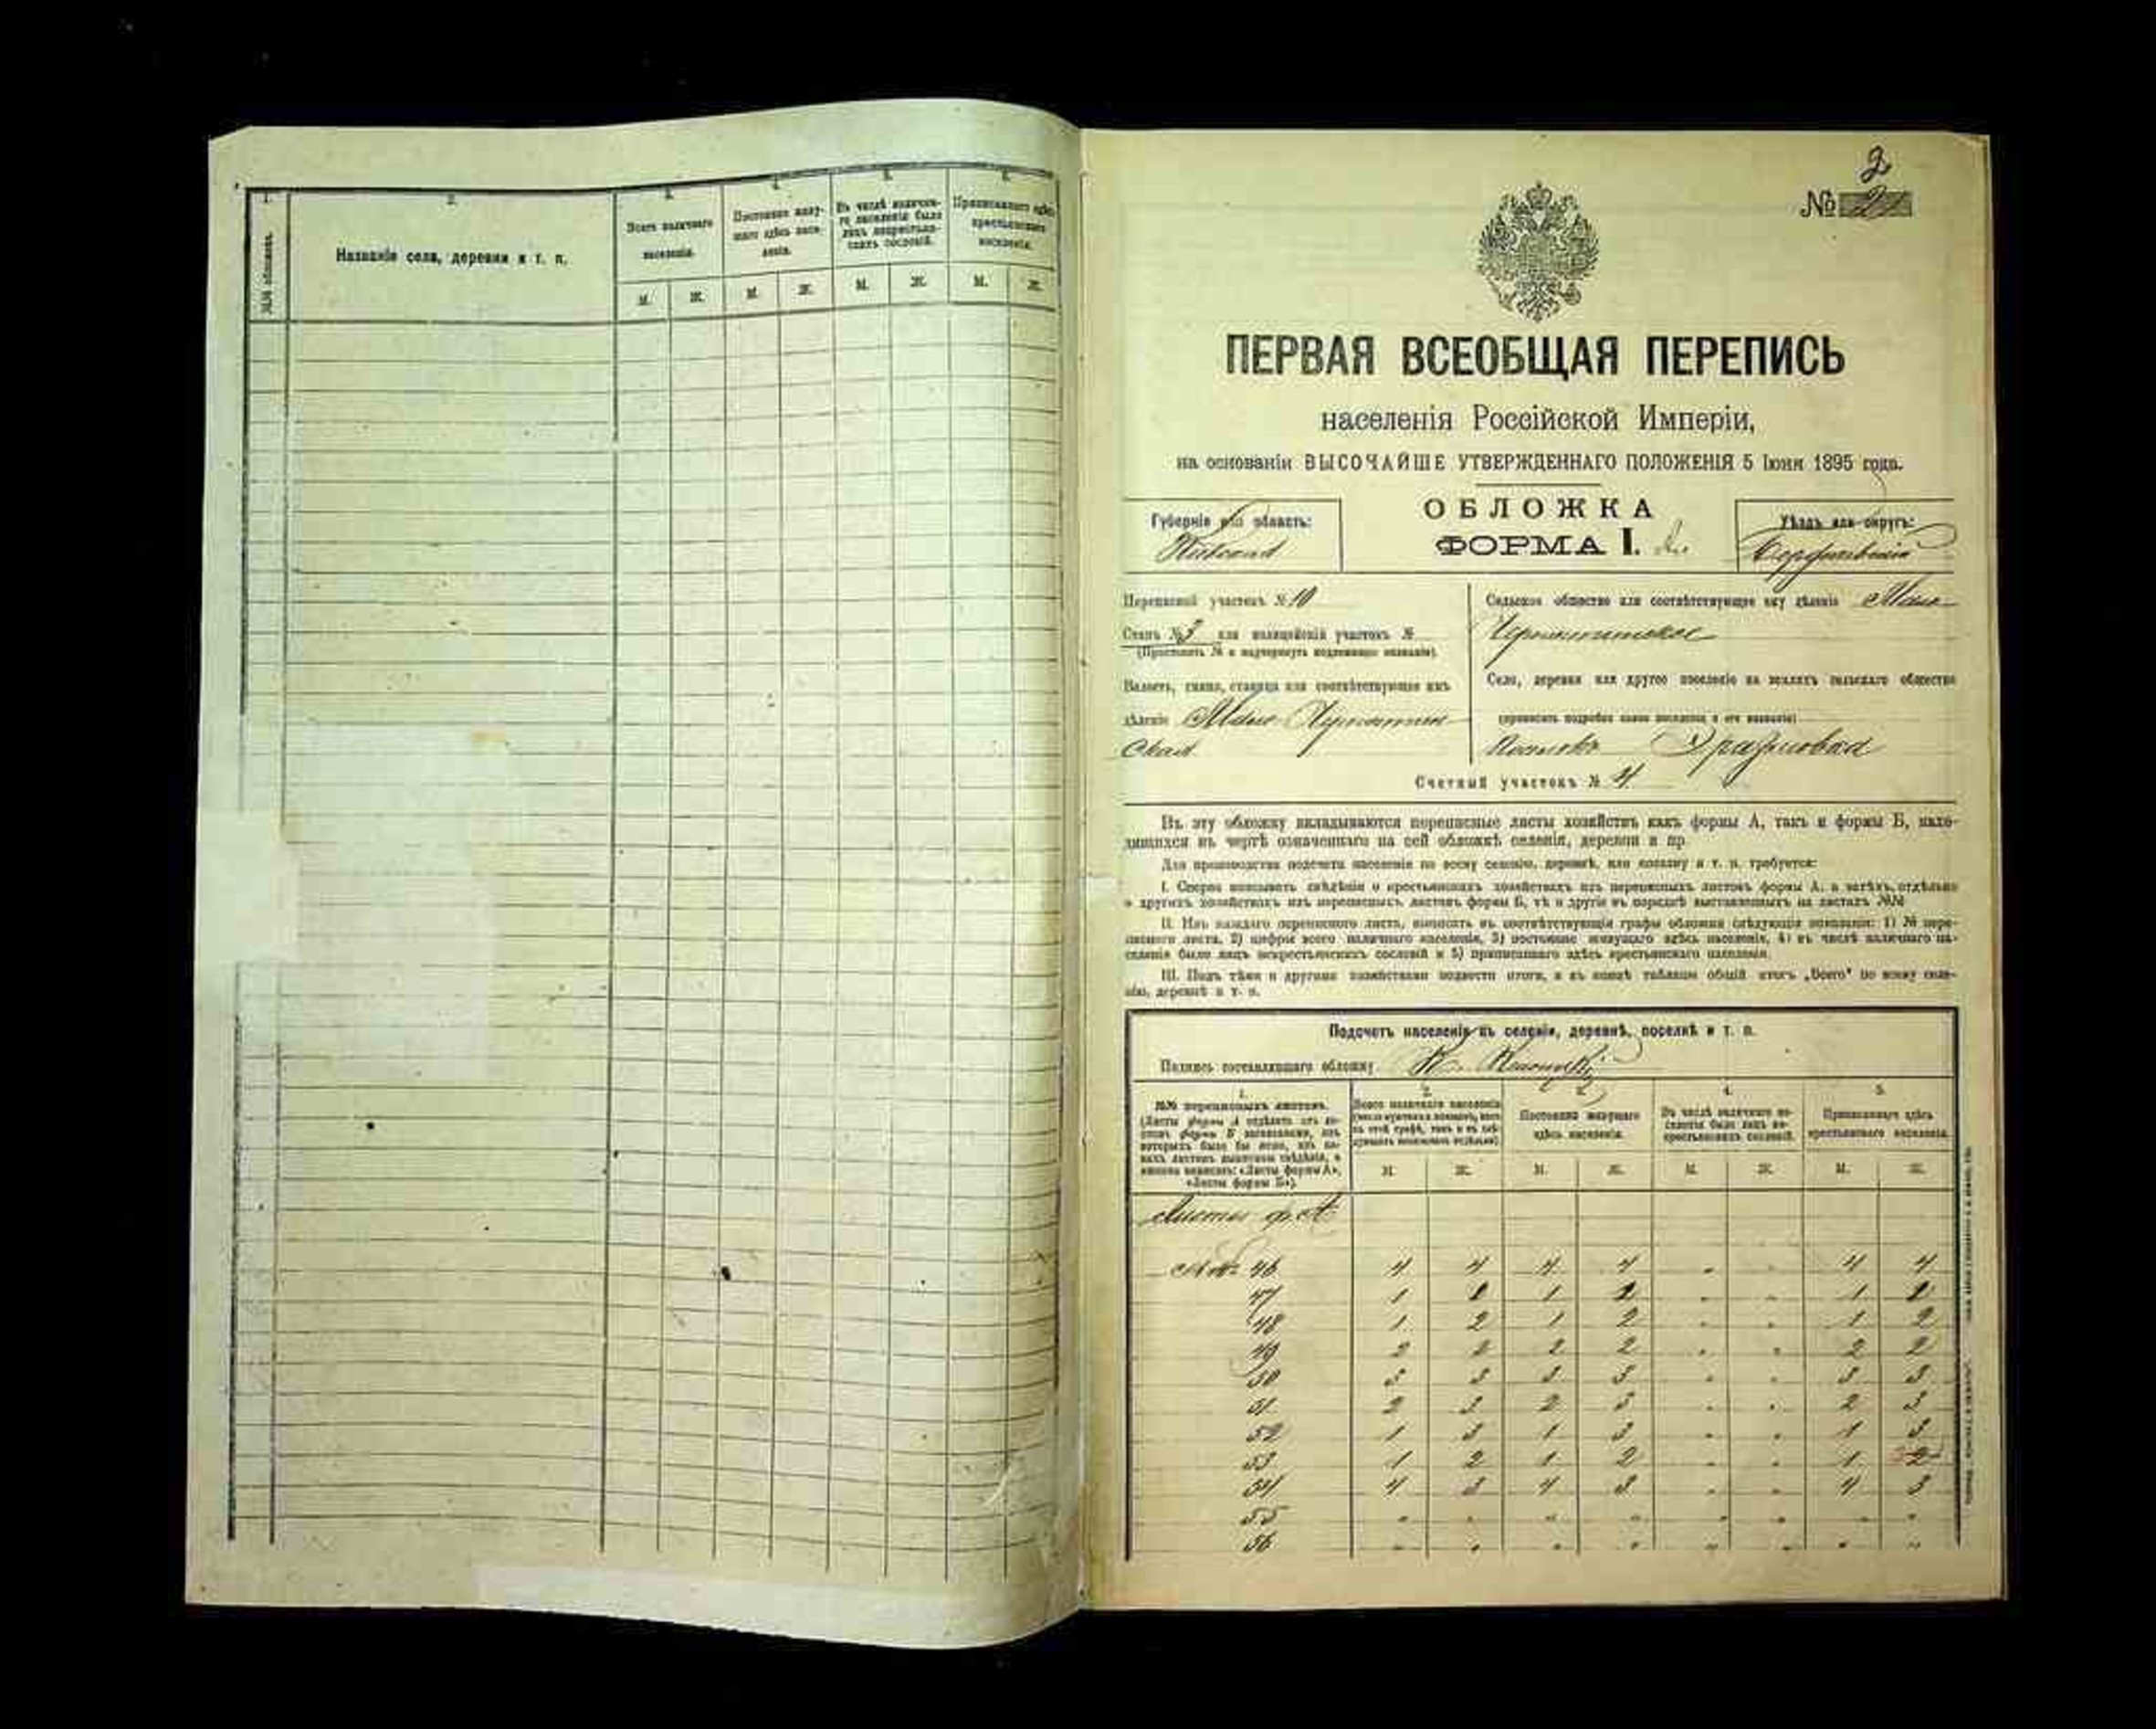 1.
2.
3.
4.
5.
6.
№№ обложекъ.
Названіе села, деревни и т. п.
Всего наличнаго населенія.
Постоянно живу-
щаго здѣсь насе-
ленія.
Въ числѣ налична-
го населенія было
лицъ некрестьян-
скихъ сословій.
Приписаннаго здѣсь
крестьянскаго
населенія.
М. Ж. М. Ж. М. Ж. М. Ж.
2
№ 21
ПЕРВАЯ ВСЕОБЩАЯ ПЕРЕПИСЬ
населенія Россійской Имперіи,
на основаніи ВЫСОЧАЙШЕ УТВЕРЖДЕННАГО ПОЛОЖЕНІЯ 5 Іюня 1895 года.
Губернія или область:
Кіевская
ОБЛОЖКА
ФОРМА I.
Уѣздъ или округъ:
Бердичевскій
Переписной участокъ № 10
Станъ № 3 или полицейскій участокъ №
(Проставить № и подчеркнуть подлежащее названіе).
Волость, гмина, станица или соотвѣтствующее имъ
дѣленіе Мало-Чернятин
ская
Сельское общество или соотвѣтствующее ему дѣленіе Мало-
Чернятинское
Село, деревня или другое поселеніе на земляхъ сельскаго общества
(прописать подробно какое поселеніе и его названіе)
Поселокъ
Счетный участокъ № 4
Въ эту обложку вкладываются переписные листы хозяйствъ какъ формы А, такъ и формы Б, нахо-
дящихся въ чертѣ означеннаго на сей обложкѣ селенія, деревни и пр.
Для производства подсчета населенія по всему селенію, деревнѣ, или поселку и т. п. требуется:
I. Сперва вписывать свѣдѣнія о крестьянскихъ хозяйствахъ изъ переписныхъ листовъ формы А, а затѣмъ, отдѣльно
о другихъ хозяйствахъ изъ переписныхъ листовъ формы Б, тѣ и другія въ порядкѣ выставленныхъ на листахъ №№
II. Изъ каждаго переписного листа, выписать въ соотвѣтствующія графы обложки слѣдующія показанія: 1) № пере-
писного листа, 2) цифры всего наличнаго населенія, 3) постоянно живущаго здѣсь населенія, 4) въ числѣ наличнаго на-
селенія было лицъ некрестьянскихъ сословій и 5) приписаннаго здѣсь крестьянскаго населенія.
III. Подъ тѣми и другими хозяйствами подвести итоги, а въ концѣ таблицы общій итогъ „Всего“ по всему селе-
нію, деревнѣ и т. п.
Подсчетъ населенія въ селеніи, деревнѣ, поселкѣ и т. п.
Подпись составлявшаго обложку
1.
2.
3.
4.
5.
№№ переписныхъ листовъ.
(Листы формы А отдѣлить отъ ли-
стовъ формы Б заголовками, изъ
которыхъ было бы ясно, изъ ка-
кихъ листовъ выписаны свѣдѣнія, а
именно написать: «Листы формы А»,
«Листы формы Б»).
Всего наличнаго населенія
Постоянно живущаго
здѣсь населенія.
Въ числѣ наличнаго на-
селенія было лицъ не-
крестьянскихъ сословій.
Приписаннаго здѣсь
крестьянскаго населенія.
М. Ж. М. Ж. М. Ж. М. Ж.
Листы ф. А
46 4 4 4 4 - - 4 4
47 1 1 - - 1
48 1 2 1 2 - - 1 2
49 2 2 2 2 - - 2 2
50 3 3 3 3 - - 3 3
51 2 3 2 3 - - 2 3
52 1 3 1 3 - - 1 3
53 1 2 1 2 - - 1 2
54 4 3 4 3 - - 4 3
55 - - - - - - - -
56 - - - - - - - -